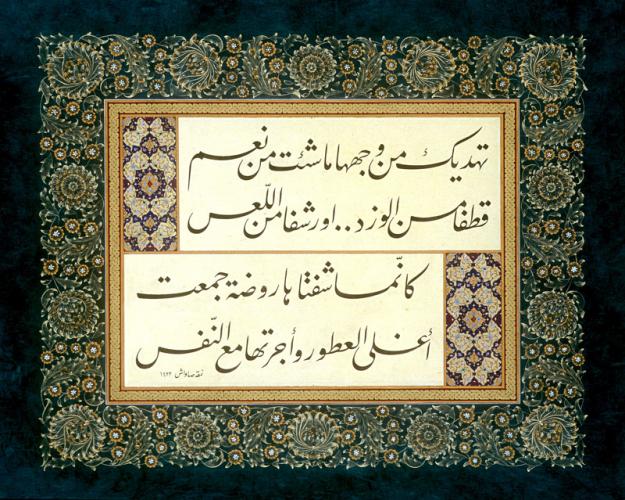 تهديك من وجهها ما شئت من نعم
قطفا من الورد .. أو رشفا من اللّعس
كانّما شفتاها روضة جمعت
أغلى العطور وأجرتها مع النّفس
نمقه صاواش ١٩٩٤